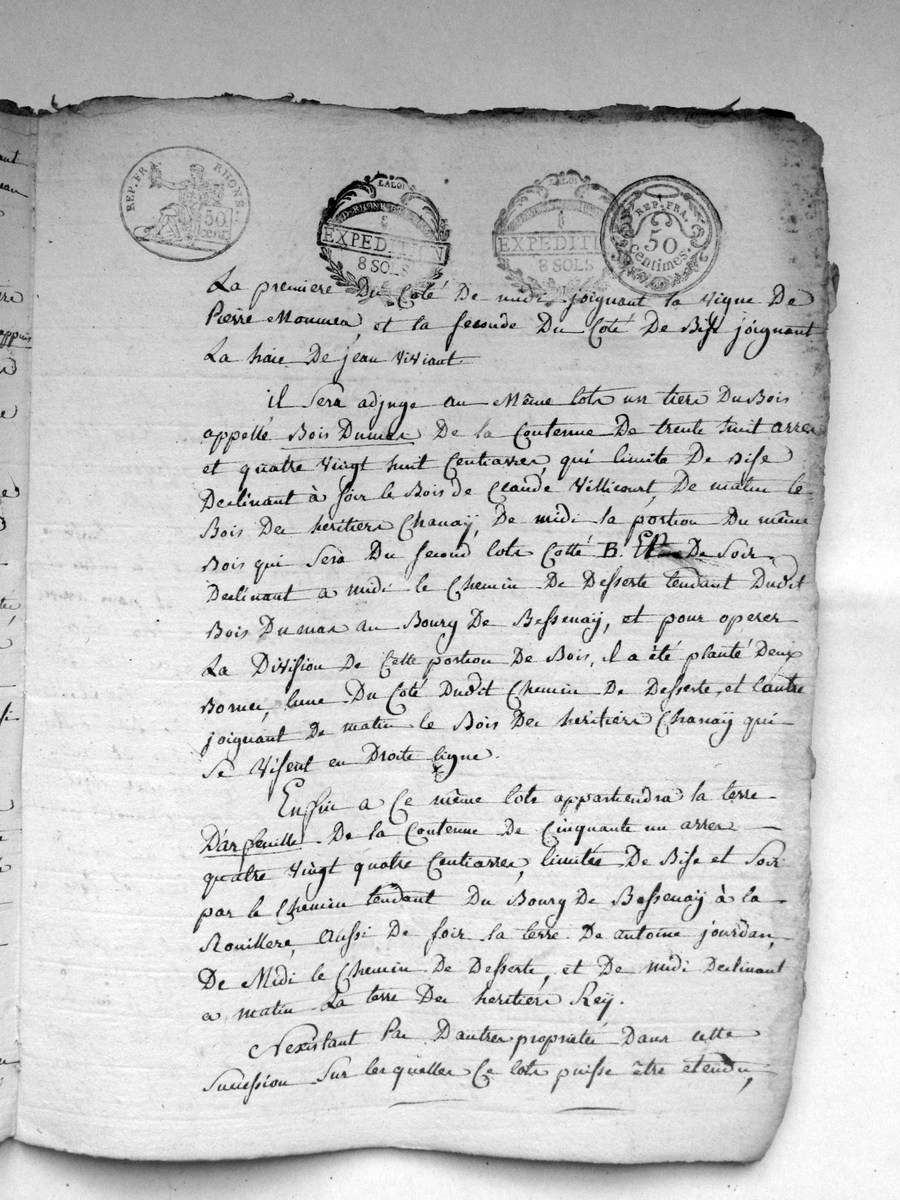 REP. FRA. RHONE.
50
cent.
LA LOI
8
EXPEDITION
8 SOLS
LA LOI
8
EXPEDITION
8 SOLS
REP. FRA.
50
Centimes.
La premiere Du Coté De midi joignant la vigne De
Pierre et la seconde Du Coté De Bise joignant
La haie De jean Viviant.
il Sera adjugé au Même lots un tiers Du Bois
appellé Bois Dumas De la Contenue De trente huit arres
et quatre Vingt huit Centiarres, qui limite De Bise
Declinant à soir le Bois de Claude Villicourt, De matin le
Bois Des heritiers Chanaÿ, De midi la portion Du même
Bois qui Sera Du second lots Cotté B. Et De Soir
Declinant a midi le Chemin De Desserte tendant Dudit
Bois Dumas au Bourg De Bessenaÿ, et pour operer
La Division De Cette portion De Bois, il a été planté Deux
Bornes, lune Du Coté Dudit Chemin De Desserte, et l'autre
joignant De matin le Bois Des heritiers Chanaÿ qui
Se Visent en Droite ligne.
Enfin a Ce même lots appartiendra la terre
D'arfeuille De la Contenue De Cinquante un arres
quatre Vingt quatre Centiarres, limitée De Bise et Soir
par le Chemin tendant Du Bourg De Bessenaÿ à la
Rouillere, aussi De soir la terre De antoine jourdan,
De Midi le Chemin De Desserte, et De midi Declinant
a matin La terre Des heritiers Reÿ.
N'existant Pas D'autres propriétés Dans cette
Succession Sur les quelles Ce lots puisse être etendu,